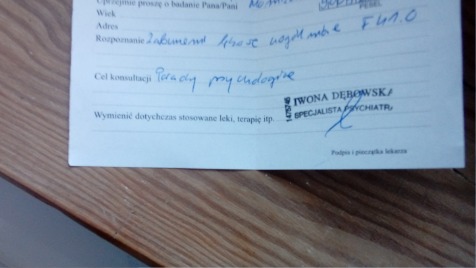 Uprzejmie proszę o badanie Pana/Pani
PESEL
Wiek
Adres
Rozpoznanie F41.0
Cel konsultacji Porady psychologiczne
IWONA DĘBOWSKA
SPECJALISTA PSYCHIATRA
Wymienić dotychczas stosowane leki, terapię itp.
Podpis i pieczątka lekarza